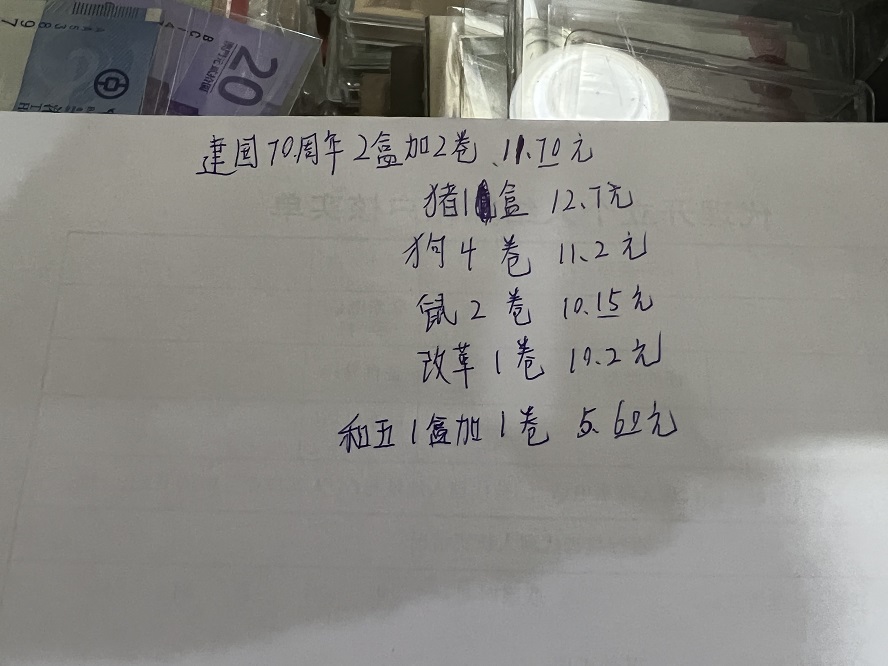 20
建国70周年2盒加2卷、11.70元
猪1盒 12.7元
狗4卷 11.2元
鼠2卷 10.15元
改革1卷 10.2元
和五1盒加1卷 5.60元